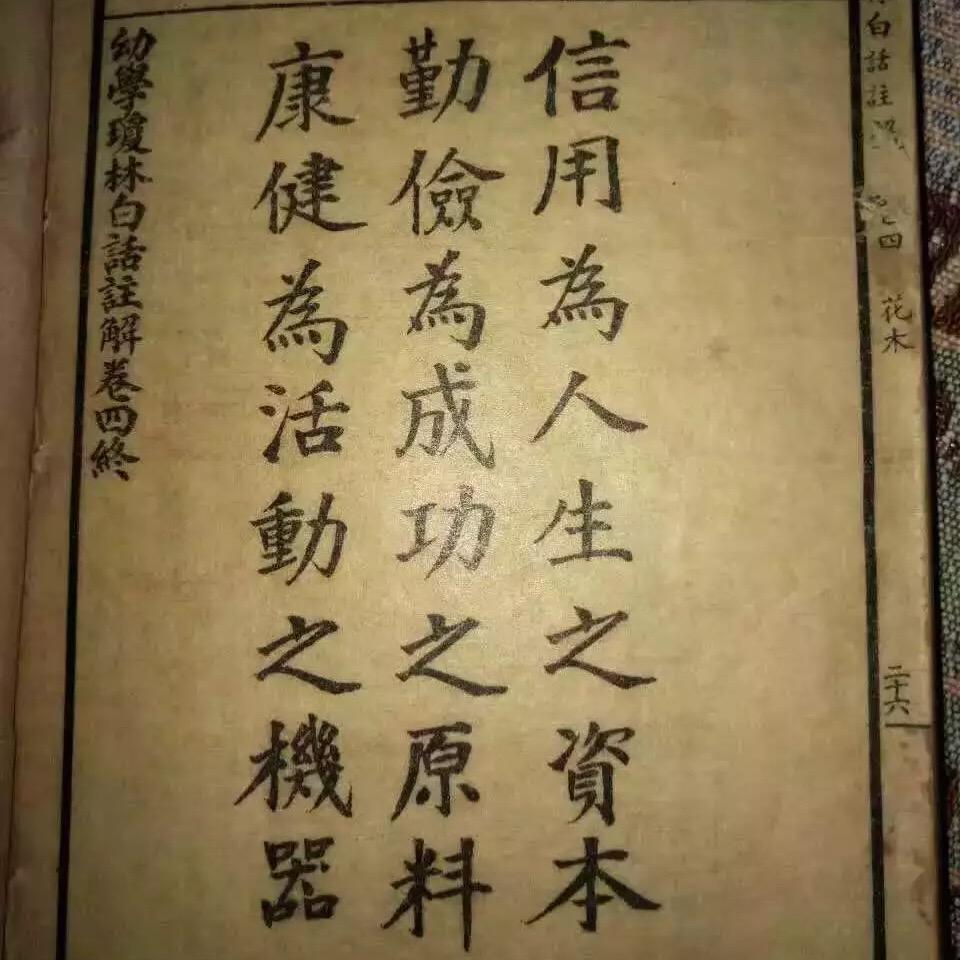 白話註
卷四
花木
二十六
信用為人生之資本
勤儉為成功之原料
康健為活動之機器
幼學瓊林白話註解卷四終